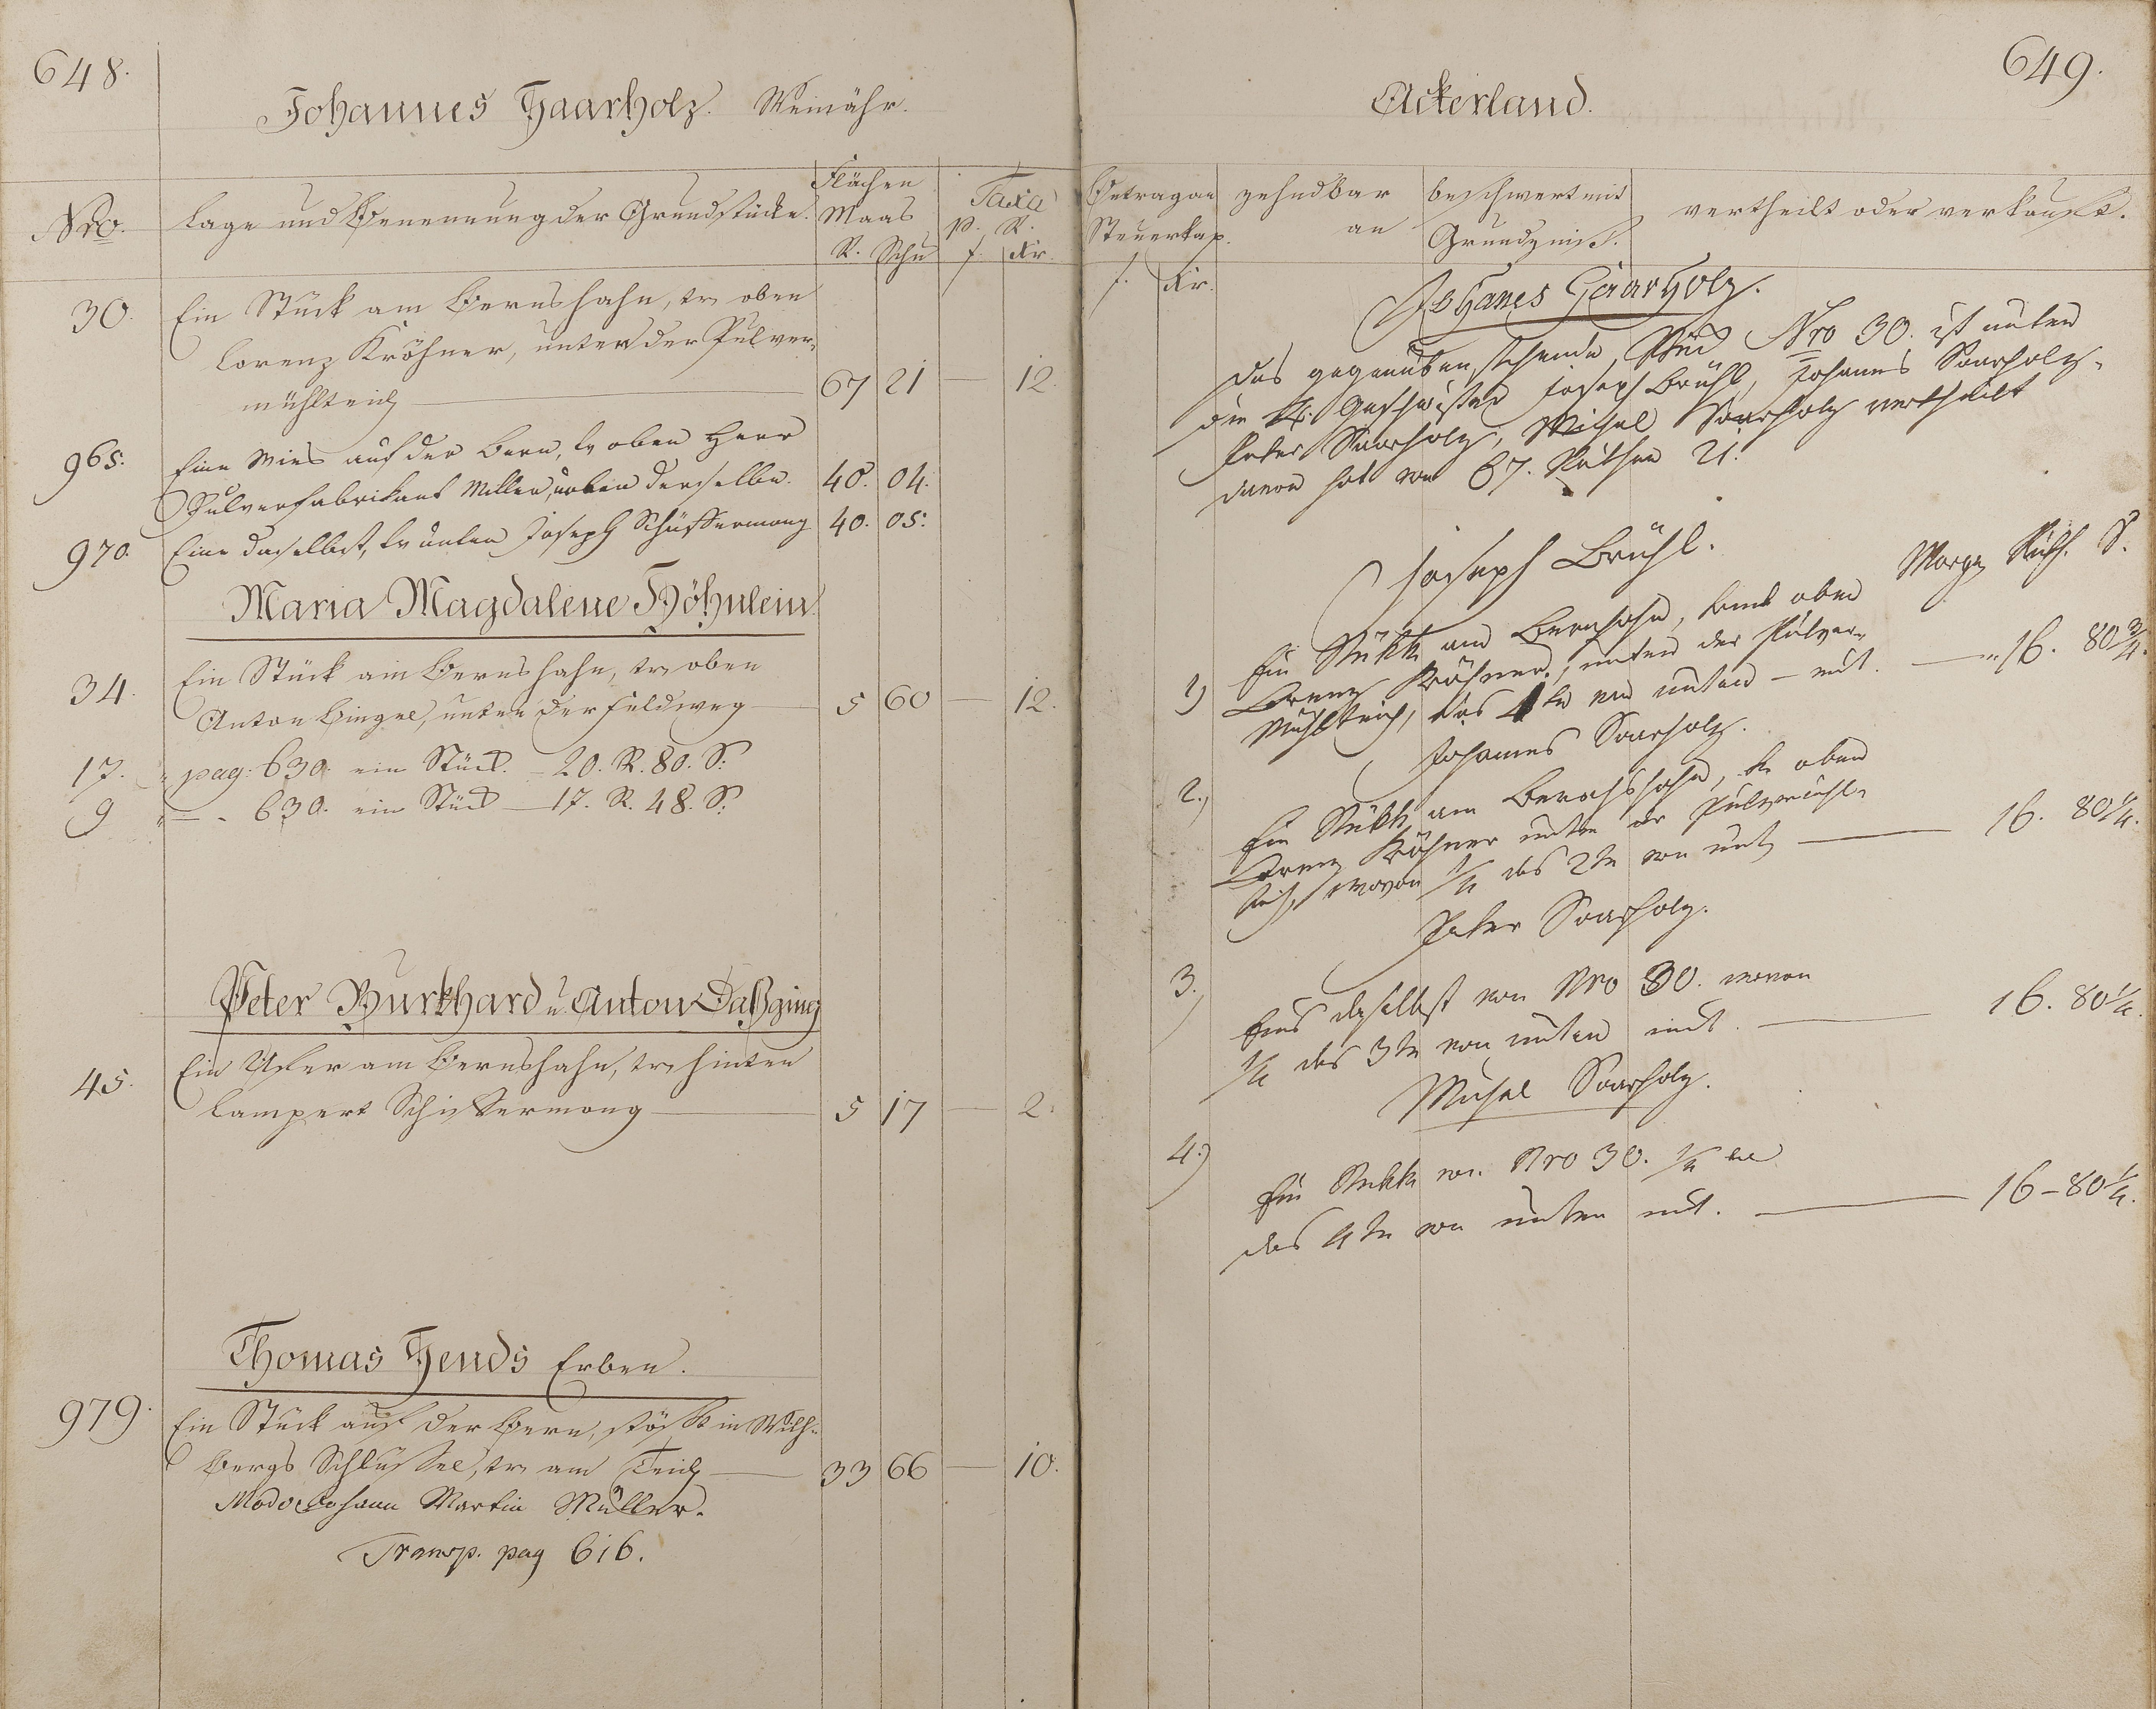 648.
Johannes Haarholz. Weinähr.
Nro. Lage und Benennung der Grundstücke. Flächen Maas R. Schu Taxa p. R. f. Kr.
30. Ein Stück am Bernshahn, tr oben
Lorenz Kröhner, unten der Pulver-
mühlteich 67 21 — 12.
965. Eine Wies auf der Bern, tr oben Herr
Pulverfabrikant Müller, unten derselbe. 40. 04.
970. Eine daselbst, tr unten Joseph Schüssermong 40. 05.
Maria Magdalene Höhnlein
34. Ein Stück am Bernshahn, tr oben
Anton Bingel, unten der Feldweg 5 60 — 12.
17. " pag: 630. ein Stück. — 20. R. 80. S.
9 " — 630. ein Stück — 17. R. 48. S.
Peter Burkhard u. Anton Daßging
45. Ein Acker am Bernshahn, tr hinten
Lampert Schissermong 5 17 — 2.
Thomas Hends Erben.
979. Ein Stück auf der Bern, stößt in
bergs Schlüssel, tr am Teich 33 66 — 10.
Modo Johann Martin Müller.
Transp. pag 616.
649.
Ackerland.
Betrag an Steuerkap. f. Kr. zehndbar an beschwert mit Grundzinß. vertheilt oder verkauft.
Johanes Haarholz.
das gegenüberstehende Nro 30. ist unter
die Geschwister Joseph Brühl, Johannes Haarholz,
Peter Haarholz, Michel Haarholz vertheilt
davon hat von 67. Ruthen 21.
Joseph Brühl.
Morg. Ruth. S.
1) Ein Stükk am Bernshahn, oben
Lorenz Kröhner, unten der Pulver-
mühlteich, das 1te von unten — mit. — " 16. 80 3/4.
Johannes Haarholz.
2.) Ein Stükk am Bernshahn, tr oben
Lorenz Kröhner unten der Pulvermühl-
teich, wovon 1/4 das 2te von unt — 16. 80 1/4.
Peter Haarholz.
3.) Eins daselbst von Nro 30. wovon
1/4 das 3te von unten mit. — 16. 80 1/4.
Michel Haarholz.
4.) Ein Stükk von Nro 30. 1/4
das 4te von unten mit. — 16 — 80 1/4.